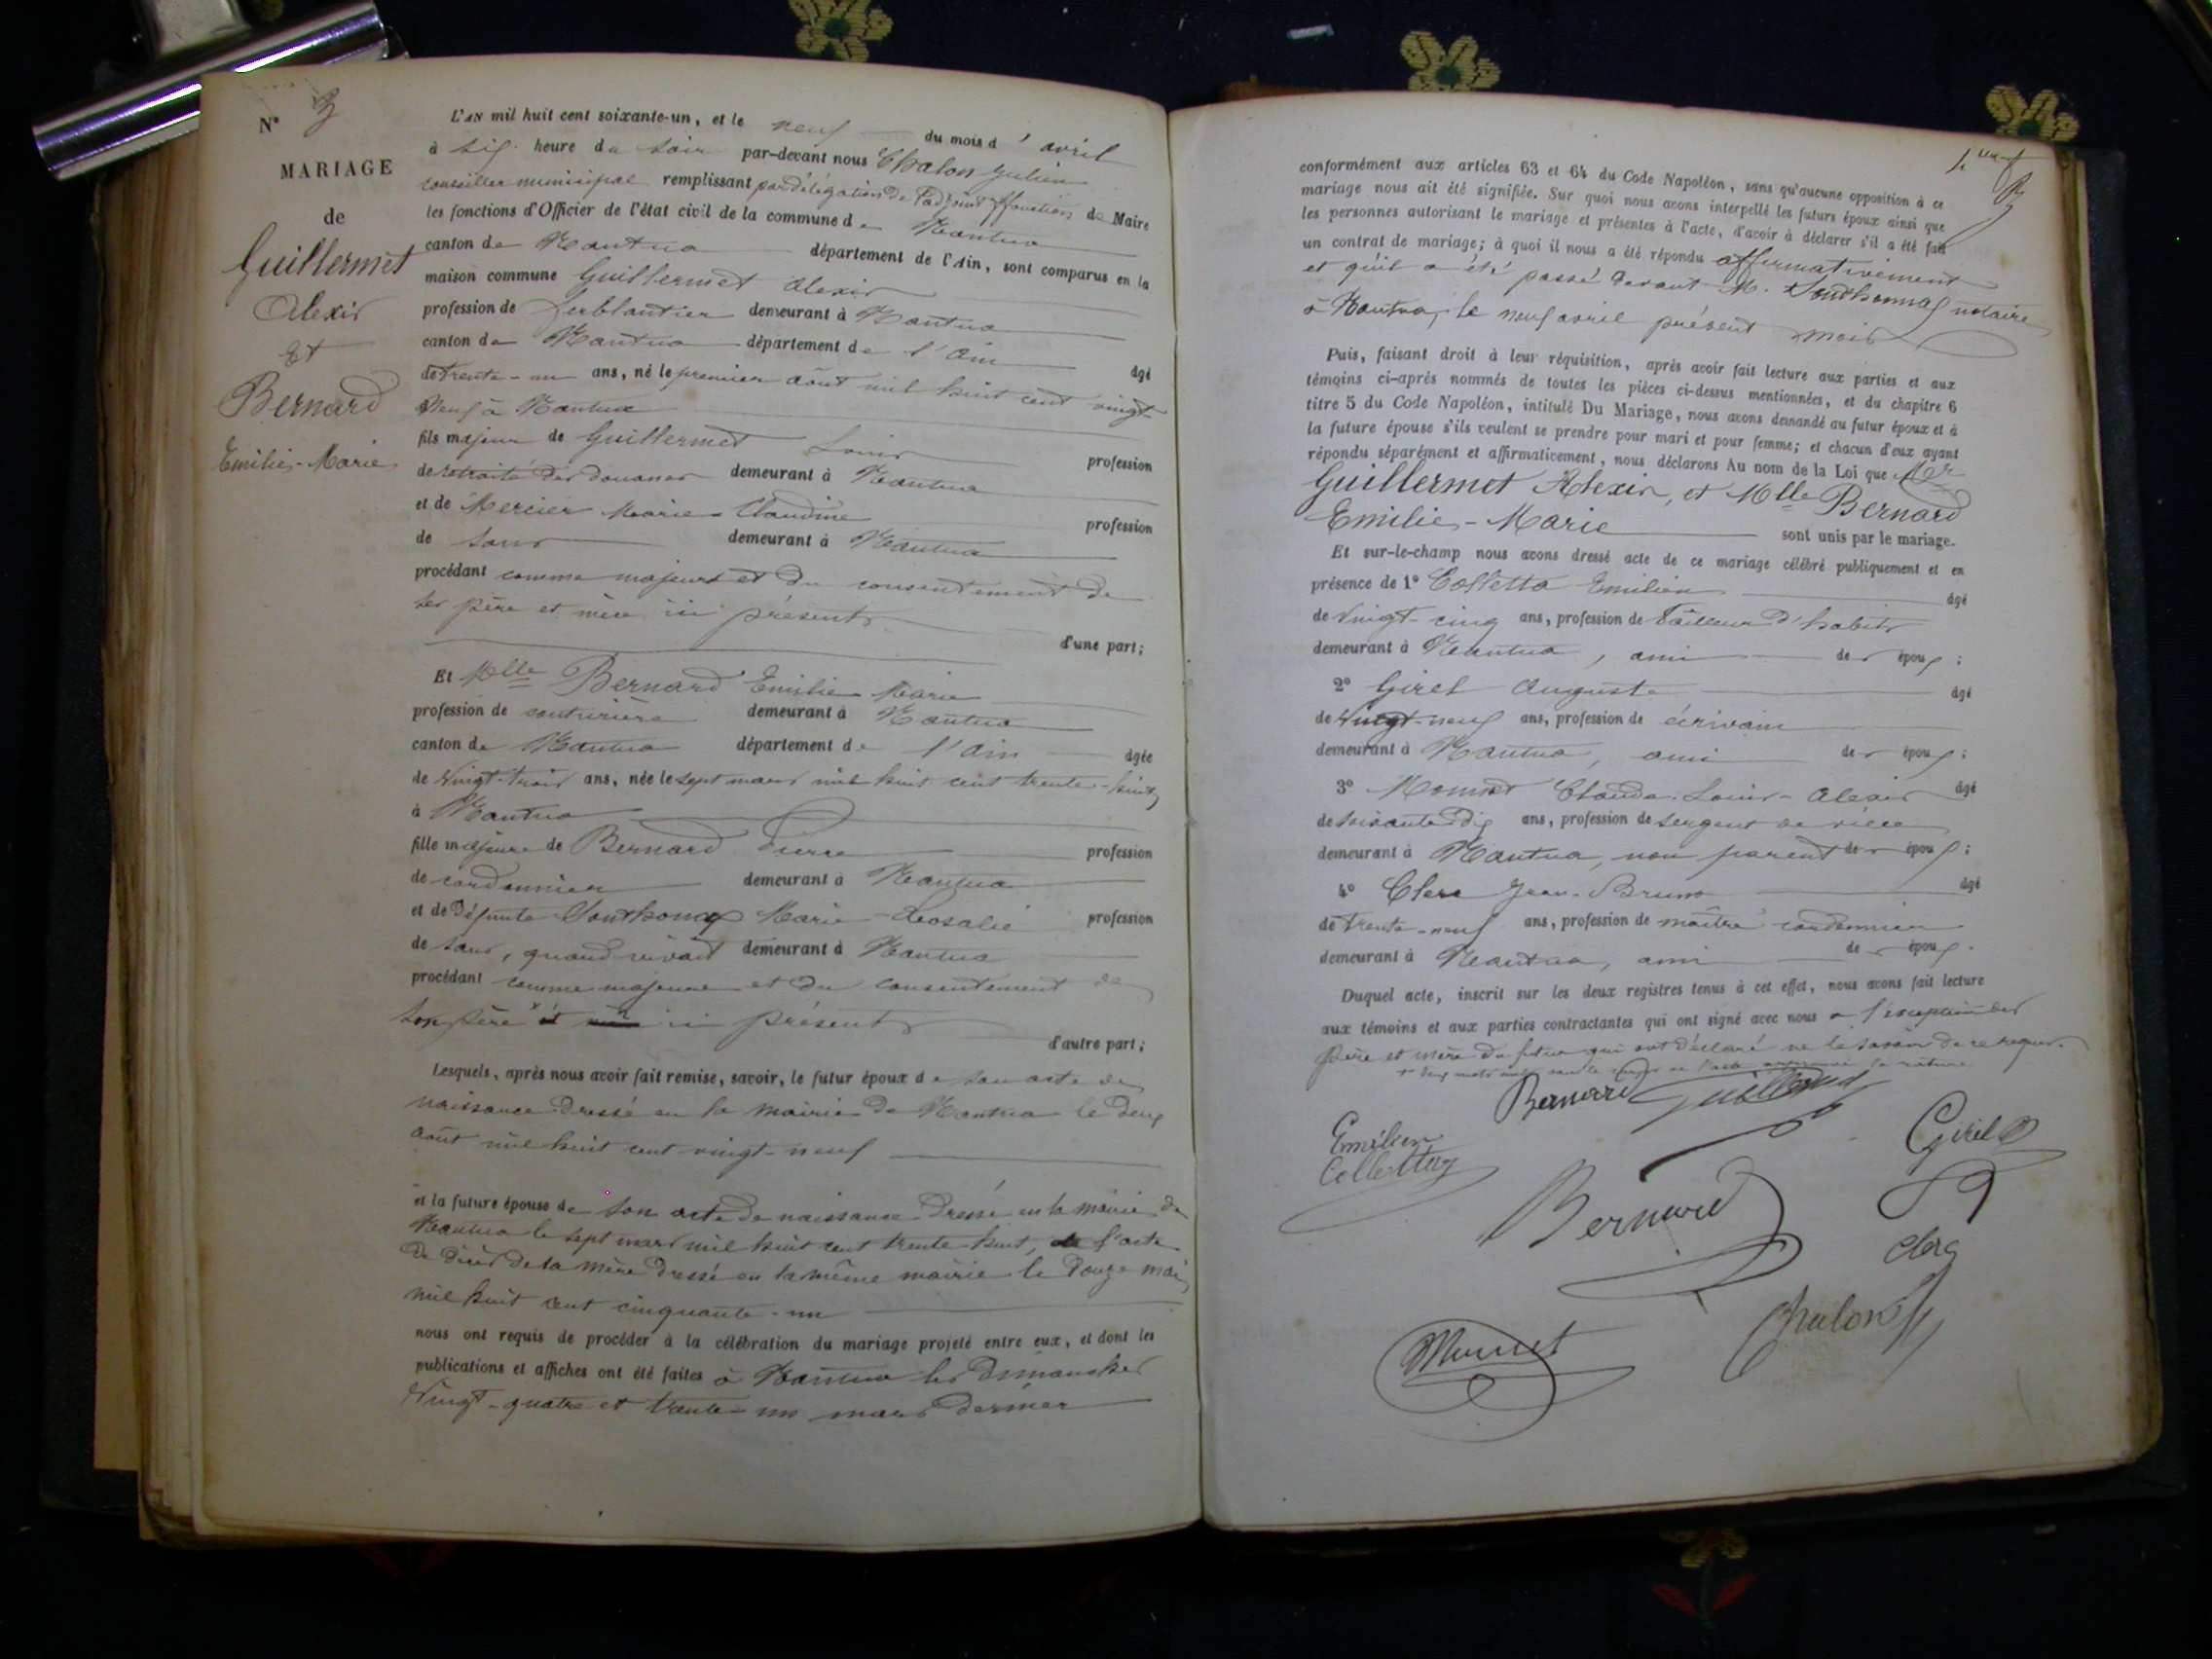 N° 3
MARIAGE
de
Guillermet
Alexis
Et
Bernard
Emilie-Marie
L'AN mil huit cent soixante-un, et le neuf du mois d'avril
à six heure du soir par-devant nous Chalon Julien
conseiller municipal remplissant par délégation de l'adjoint ffonctions de Maire
les fonctions d'Officier de l'état civil de la commune de Nantua
canton de Nantua département de l'Ain, sont comparus en la
maison commune Guillermet Alexis
profession de ferblantier demeurant à Nantua
canton de Nantua département de l'Ain âgé
de trente-un ans, né le premier août mil huit cent vingt
neuf à Nantua
fils majeur de Guillermet Louis profession
de retraité des douanes demeurant à Nantua
et de Mercier Marie Claudine profession
de sans demeurant à Nantua
procédant comme majeur et du consentement de
ses père et mère ici présents
d'une part;
Et Mlle Bernard Emilie Marie
profession de couturière demeurant à Nantua
canton de Nantua département de l'Ain âgée
de vingt-trois ans, née le sept mars mil huit cent trente-huit
à Nantua
fille majeure de Bernard Pierre profession
de cordonnier demeurant à Nantua
et de défunte Southonax Marie-Rosalie profession
de sans, quand vivait demeurant à Nantua
procédant comme majeure et du consentement de
son père et ici présents
d'autre part;
Lesquels, après nous avoir fait remise, savoir, le futur époux de son acte de
naissance dressé en la mairie de Nantua le deux
août mil huit cent vingt-neuf
et la future épouse de son acte de naissance dressé en la mairie de
Nantua le sept mars mil huit cent trente-huit, de l'acte
de décès de sa mère dressé en la même mairie le douze mai
mil huit cent cinquante-un
nous ont requis de procéder à la célébration du mariage projeté entre eux, et dont les
publications et affiches ont été faites à Nantua les dimanches
vingt-quatre et trente-un mars dernier
conformément aux articles 63 et 64 du Code Napoléon, sans qu'aucune opposition à ce
mariage nous ait été signifiée. Sur quoi nous avons interpellé les futurs époux ainsi que
les personnes autorisant le mariage et présentes à l'acte, d'avoir à déclarer s'il a été fait
un contrat de mariage; à quoi il nous a été répondu affirmativement
et qu'il a été passé devant M. Southonnax notaire
à Nantua, le neuf avril présent mois
Puis, faisant droit à leur réquisition, après avoir fait lecture aux parties et aux
témoins ci-après nommés de toutes les pièces ci-dessus mentionnées, et du chapitre 6
titre 5 du Code Napoléon, intitulé Du Mariage, nous avons demandé au futur époux et à
la future épouse s'ils veulent se prendre pour mari et pour femme; et chacun d'eux ayant
répondu séparément et affirmativement, nous déclarons Au nom de la Loi que Mr
Guillermet Alexis, et Mlle Bernard
Emilie-Marie sont unis par le mariage.
Et sur-le-champ nous avons dressé acte de ce mariage célébré publiquement et en
présence de 1° Colletta Emilien âgé
de vingt-cinq ans, profession de tailleur d'habits
demeurant à Nantua, ami des époux;
2° Girel Auguste âgé
de vingt-neuf ans, profession de écrivain
demeurant à Nantua, ami des époux;
3° Monnet Claude-Louis-Alexis âgé
de soixante-dix ans, profession de sergent de ville
demeurant à Nantua, non parent des époux;
4° Clerc Jean-Bruno âgé
de trente-neuf ans, profession de maître cordonnier
demeurant à Nantua, ami des époux.
Duquel acte, inscrit sur les deux registres tenus à cet effet, nous avons fait lecture
aux témoins et aux parties contractantes qui ont signé avec nous à l'exception des
père et mère du futur qui ont déclaré ne le savoir de ce requis.
Bernard Guillermet
Emilien
Colletta
Girel
Bernard
Clerc
Chalon
Monnet